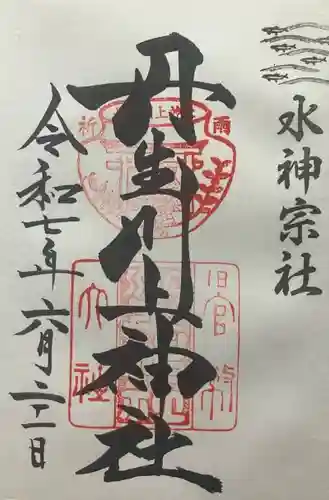 水神宗社
丹生川上神社
令和七年六月二十二日
雨
祈
上
旧官幣
大社